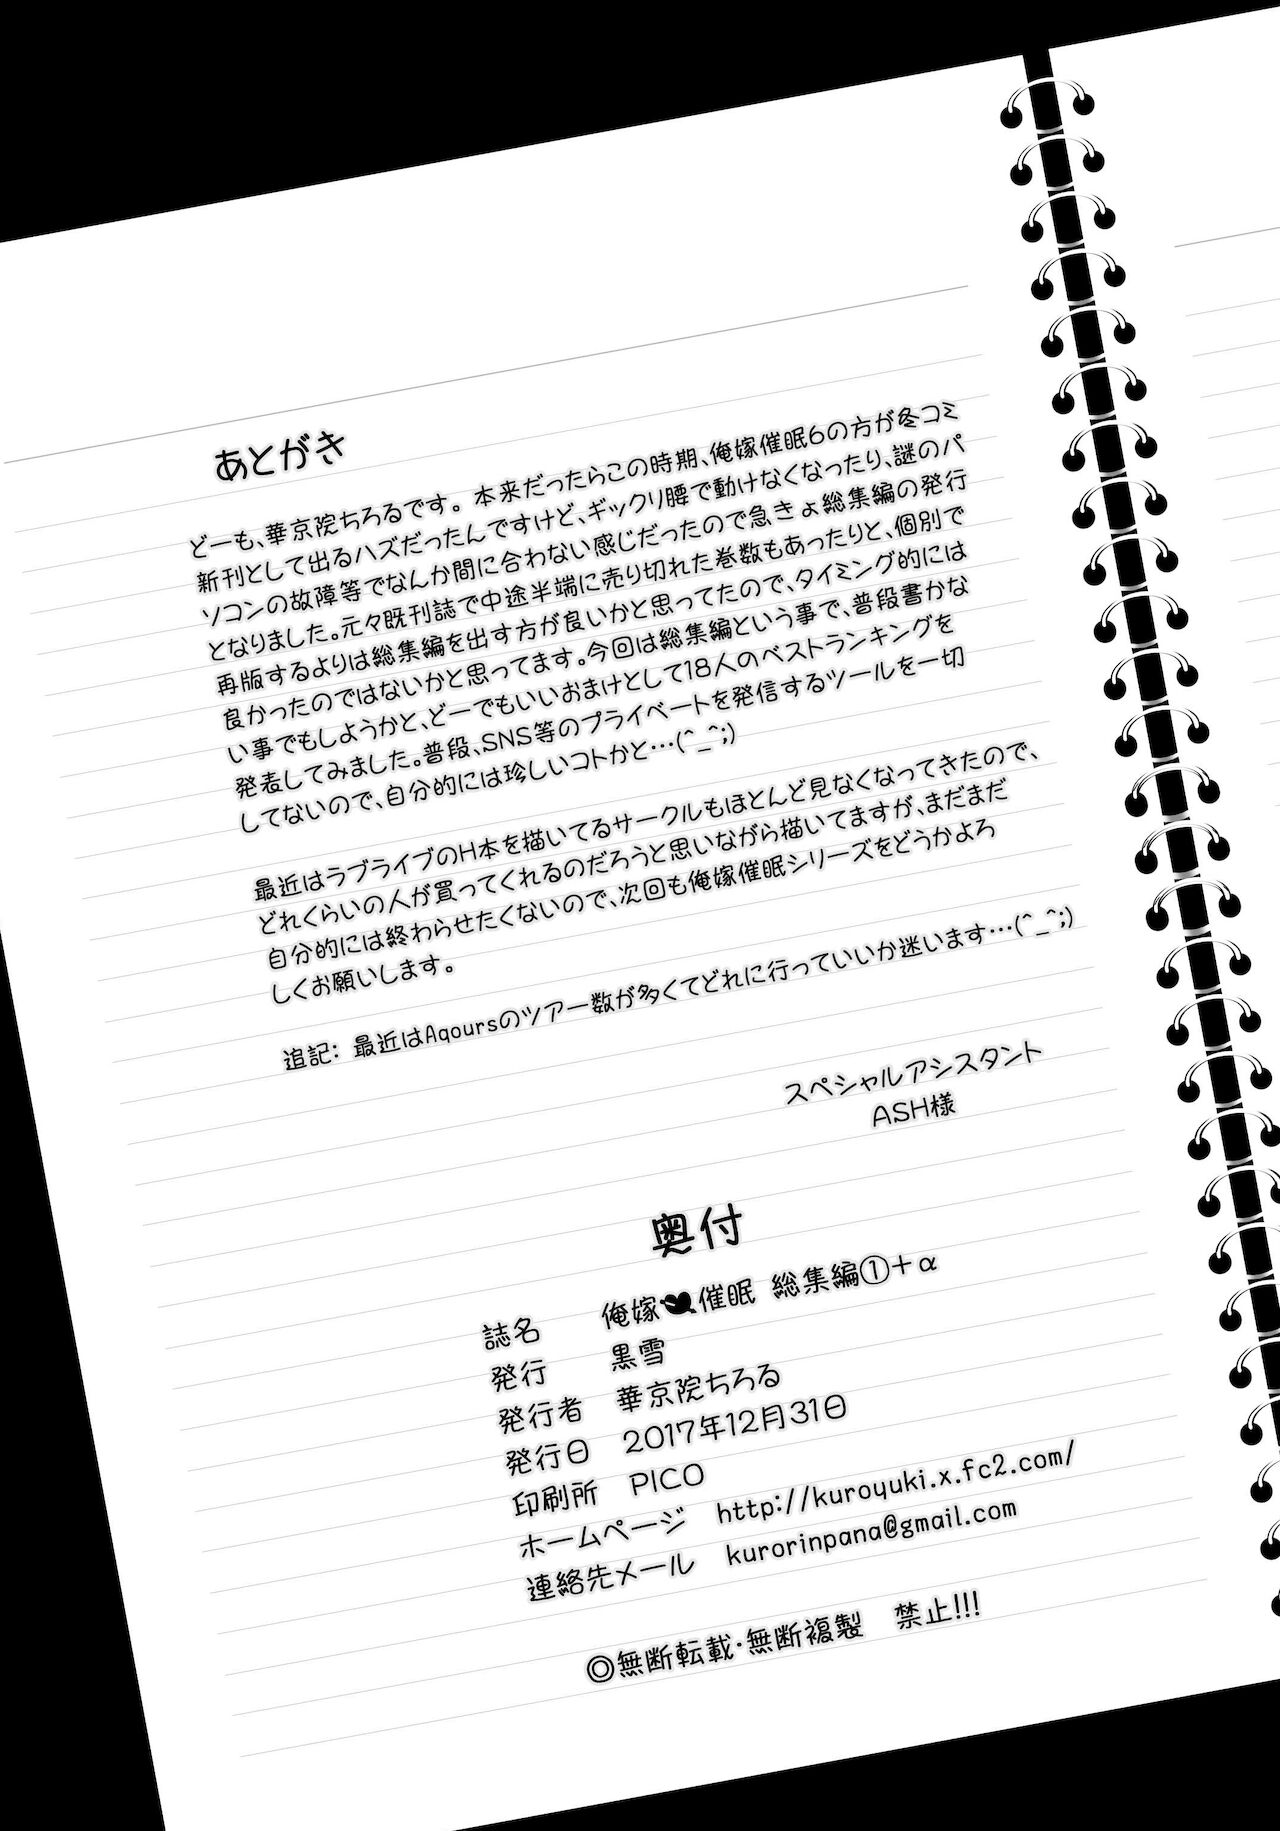 あとがき
どーも、華京院ちろるです。本来だったらこの時期、俺嫁催眠6の方が冬コミ
新刊として出るハズだったんですけど、ギックリ腰で動けなくなったり、謎のパ
ソコンの故障等でなんか間に合わない感じだったので急きょ総集編の発行
となりました。元々既刊誌で中途半端に売り切れた巻数もあったりと、個別で
再版するよりは総集編を出す方が良いかと思ってたので、タイミング的には
良かったのではないかと思ってます。今回は総集編という事で、普段書かな
い事でもしようかと、どーでもいいおまけとして18人のベストランキングを
発表してみました。普段、SNS等のプライベートを発信するツールを一切
してないので、自分的には珍しいコトかと…(^_^;)
最近はラブライブのH本を描いてるサークルもほとんど見なくなってきたので、
どれくらいの人が買ってくれるのだろうと思いながら描いてますが、まだまだ
自分的には終わらせたくないので、次回も俺嫁催眠シリーズをどうかよろ
しくお願いします。
追記: 最近はAqoursのツアー数が多くてどれに行っていいか迷います…(^_^;)
スペシャルアシスタント
ASH様
奥付
誌名 俺嫁催眠 総集編①＋α
発行 黒雪
発行者 華京院ちろる
発行日 2017年12月31日
印刷所 PICO
ホームページ http://kuroyuki.x.fc2.com/
連絡先メール kurorinpana@gmail.com
◎無断転載・無断複製 禁止!!!